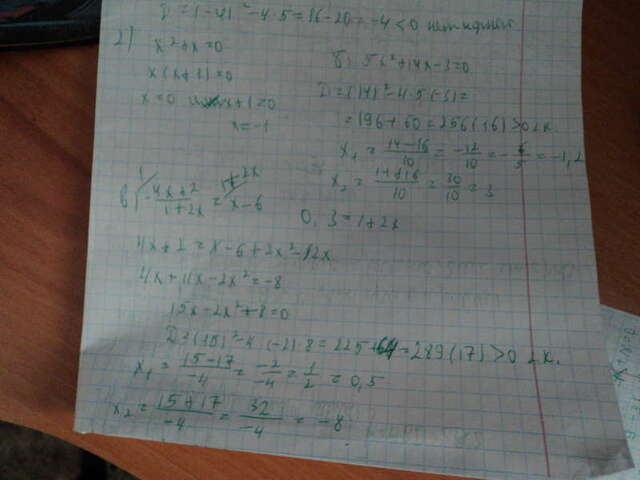 D = (-4)² - 4·5 = 16 - 20 = -4 < 0 нет корней
2)
x² + x = 0
x(x+1) = 0
x = 0 или x+1 = 0
x = -1
б) 5x² + 14x - 3 = 0
D = (14)² - 4·5·(-3) =
= 196 + 60 = 256 (16) > 0 2к.
x₁ = 14-16/10 = -12/10 = -6/5 = -1,2
x₂ = 14+16/10 = 30/10 = 3
в) 4x+2/1+2x = x-6
0,3 = 1+2x
4x+2 = x - 6 + 2x² - 12x
4x + 11x - 2x² = -8
15x - 2x² + 8 = 0
D = (15)² - 4·(-2)·8 = 225 + 64 = 289 (17) > 0 2к.
x₁ = 15-17/-4 = -2/-4 = 1/2 = 0,5
x₂ = 15+17/-4 = 32/-4 = -8